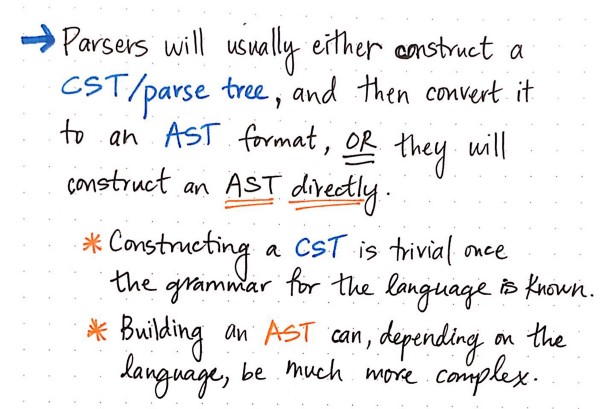 → Parsers will usually either construct a
CST/parse tree, and then convert it
to an AST format, OR they will
construct an AST directly.
* Constructing a CST is trivial once
the grammar for the language is known.
* Building an AST can, depending on the
language, be much more complex.